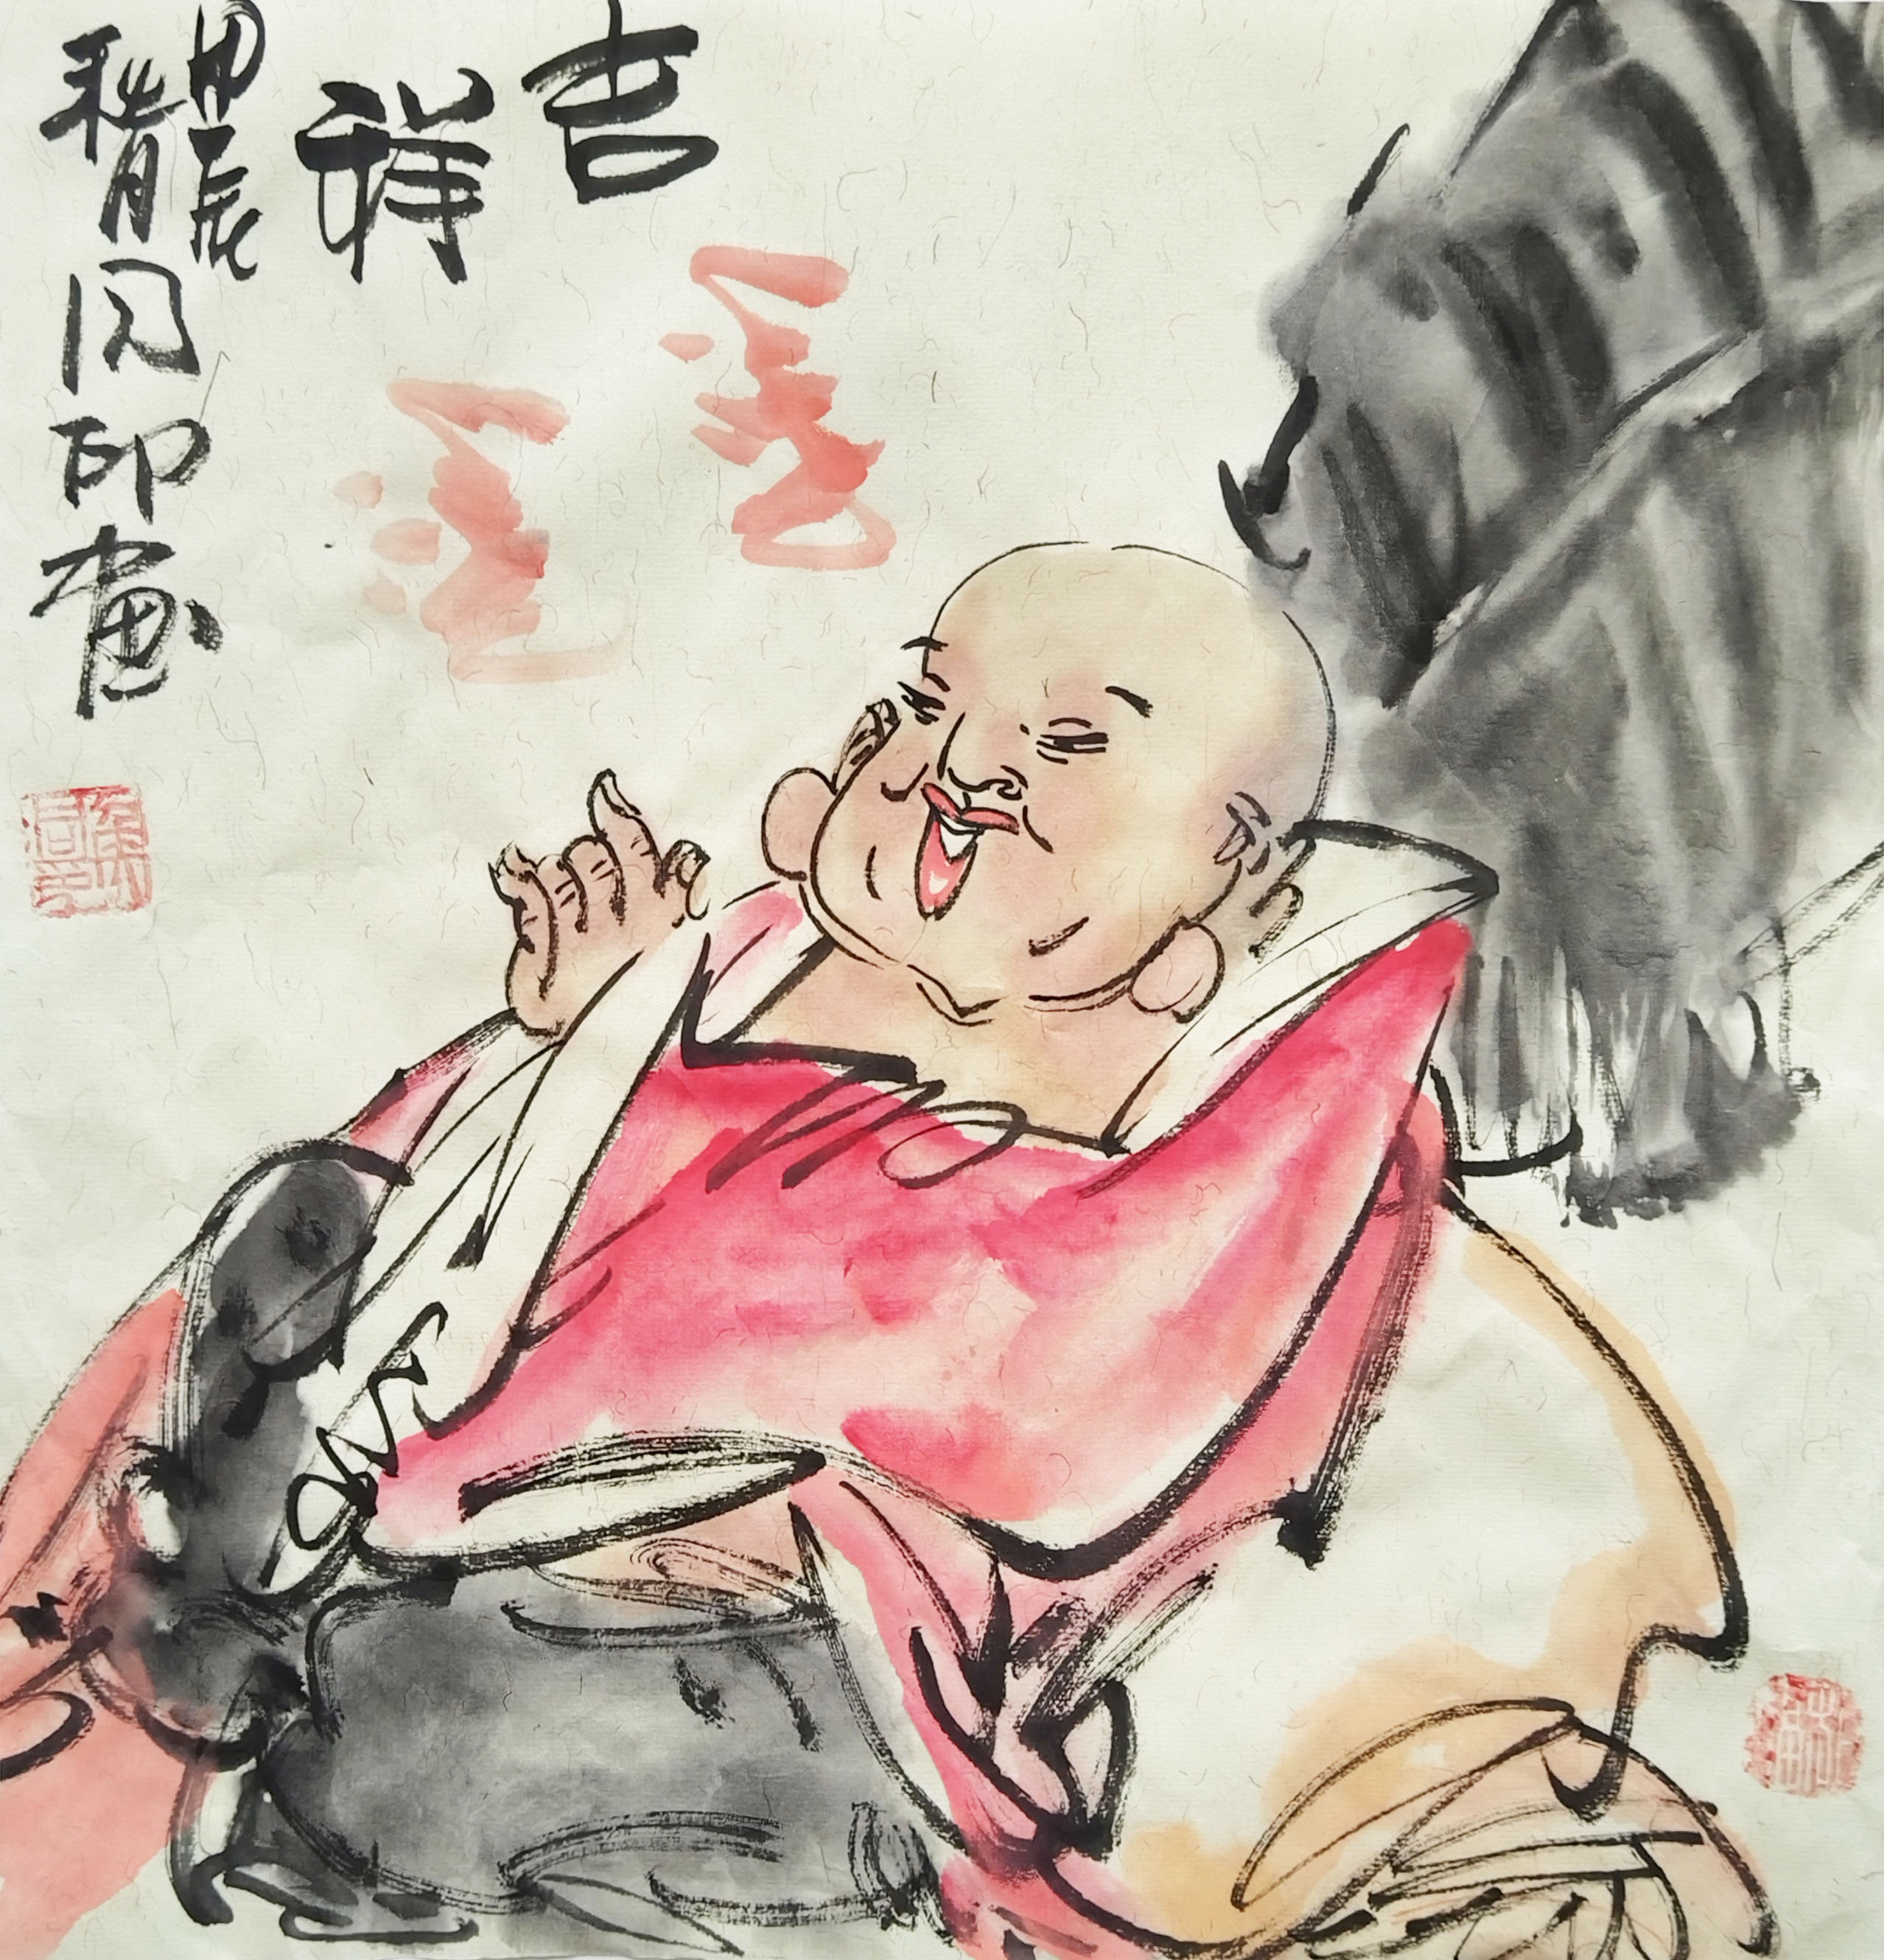 吉祥
甲辰
秋月同印画